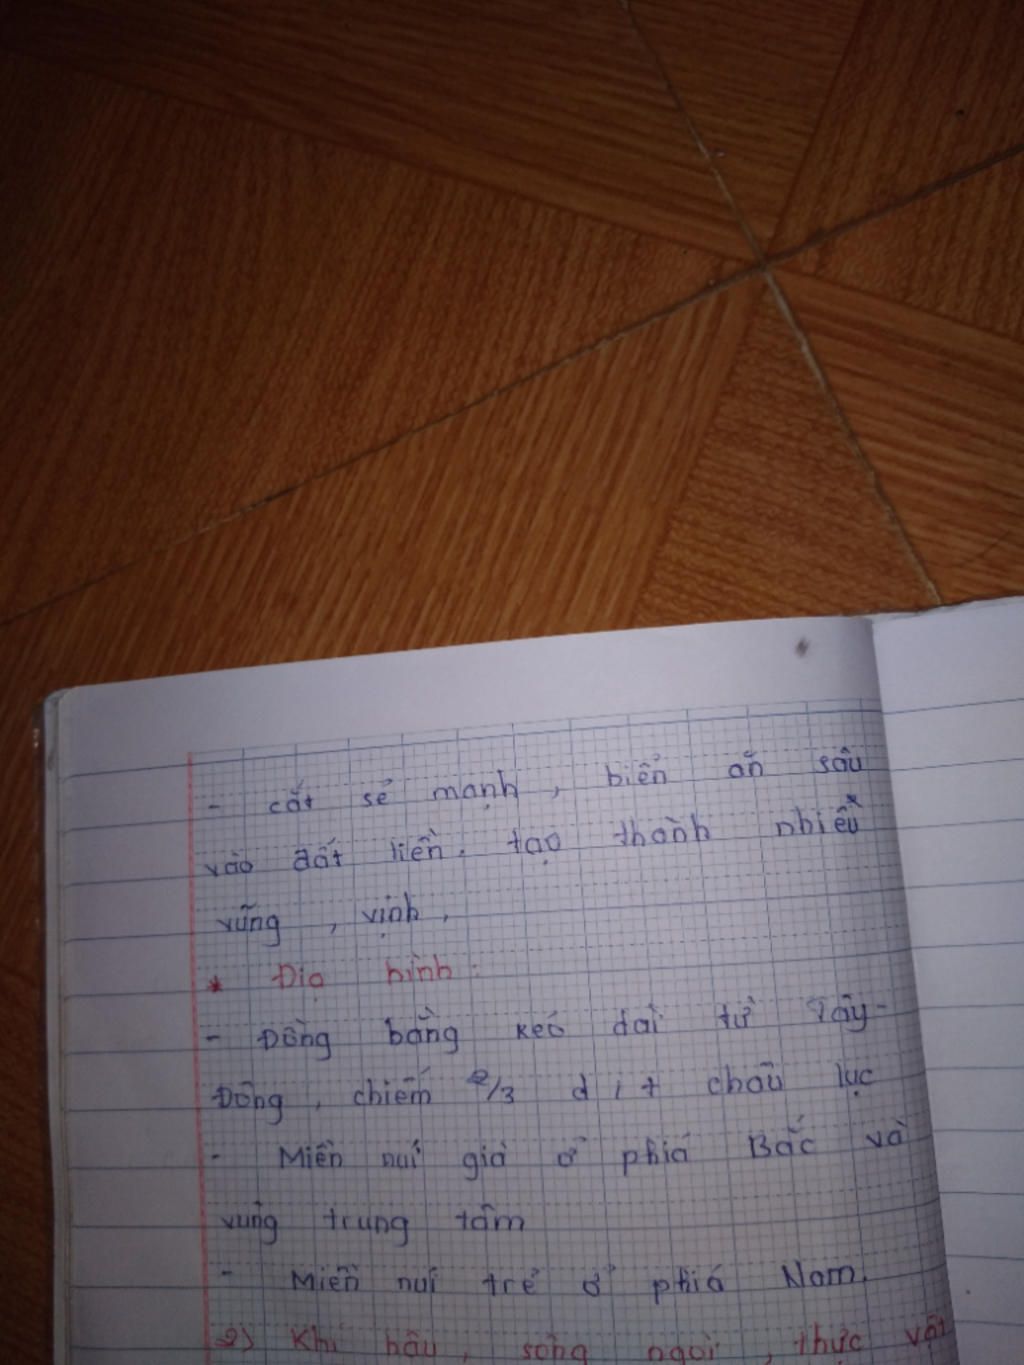 - cắt sẻ mạnh, biển ăn sâu
vào đất liền. tạo thành nhiều
vũng, vịnh,
* Địa hình:
- Đồng bằng kéo dài từ Tây -
Đông, chiếm 2/3 d/t châu lục
- Miền núi già ở phía Bắc và
vùng trung tâm
- Miền núi trẻ ở phía Nam.
2) Khí hậu, sông ngòi, thực vật